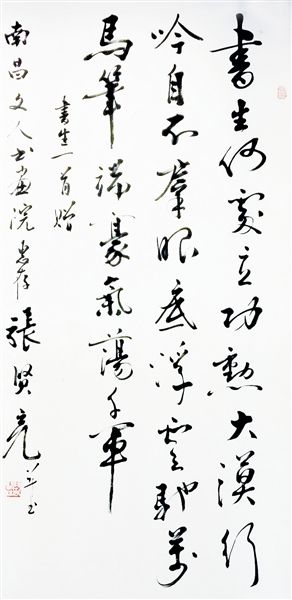 書生何處立功勳大漠行
吟自不羣眼底浮雲馳萬
馬筆端豪氣蕩千軍
書生一首贈
南昌文人书畫院惠存 張賢亮并书